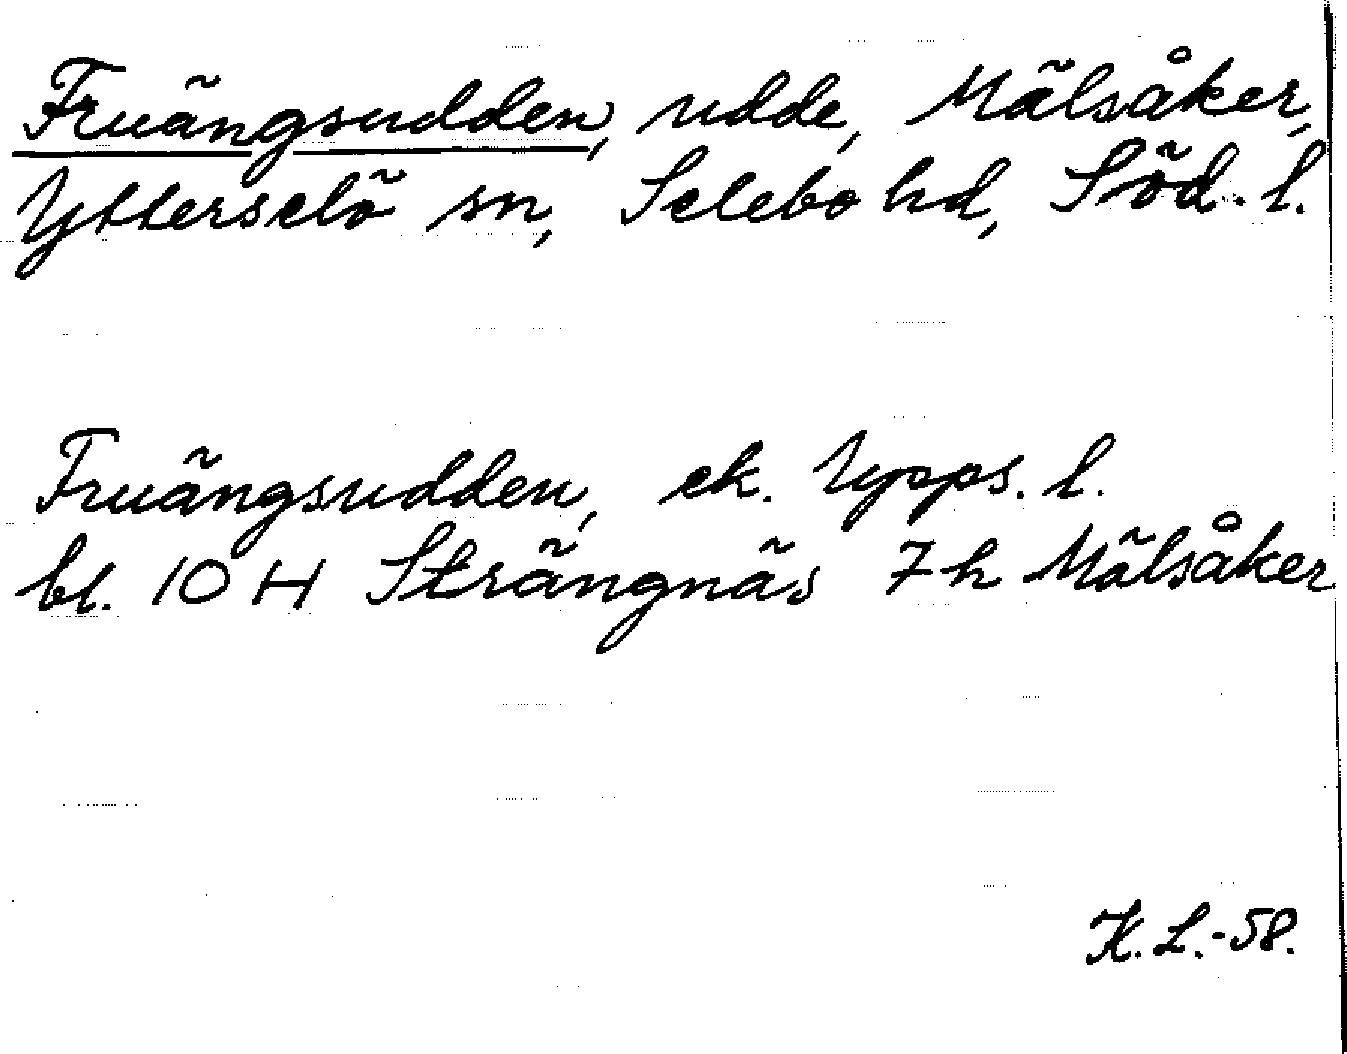 Fruängsudden, udde, Mälsåker,
Ytterselö sn, Selebo hd, Söd. l.
Fruängsudden, ek. Upps. l.
bl. 10 H Strängnäs 7h Mälsåker
K. L.-58.